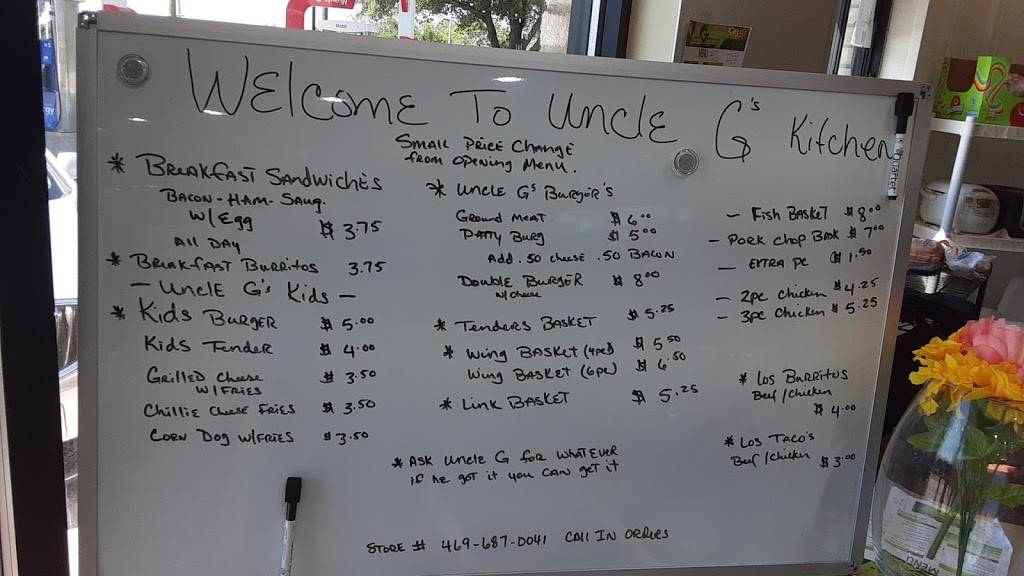 Welcome To Uncle G's Kitchen
Small Price Change
from opening Menu.
* Breakfast Sandwiches
Bacon-Ham-Saug.
w/Egg $3.75
All Day
* Breakfast Burritos 3.75
- Uncle G's Kids -
* Kids Burger $5.00
Kids Tender $4.00
Grilled Cheese $3.50
w/Fries
Chillie Cheese Fries $3.50
Corn Dog w/Fries $3.50
* Uncle G's Burger's
Ground Meat $6.00
Patty Burg $5.00
Add .50 cheese .50 Bacon
Double Burger $8.00
w/cheese
* Tenders Basket $5.25
* Wing Basket (4pc) $5.50
Wing Basket (6pc) $6.50
* Link Basket $5.25
- Fish Basket $8.00
- Pork Chop Bask $7.00
- Extra pc $1.50
- 2pc chicken $4.25
- 3pc chicken $5.25
* Los Burritos
Beef/chicken
$4.00
* Los Taco's
Beef/chicken $3.00
* Ask Uncle G for whatever
if he got it you can get it
Store # 469-687-0041 Call In Orders
Quartet
MENU
Mobil